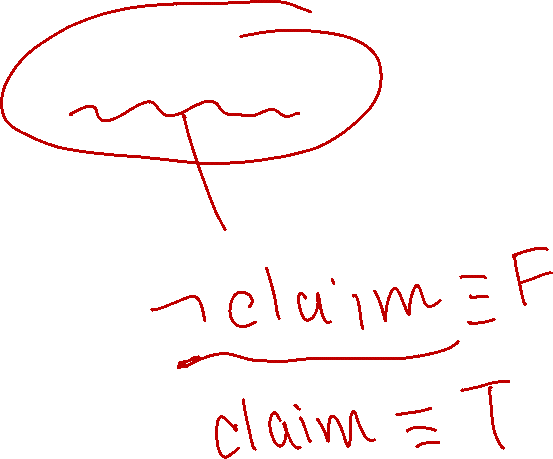 ¬claim ≡ F
claim ≡ T